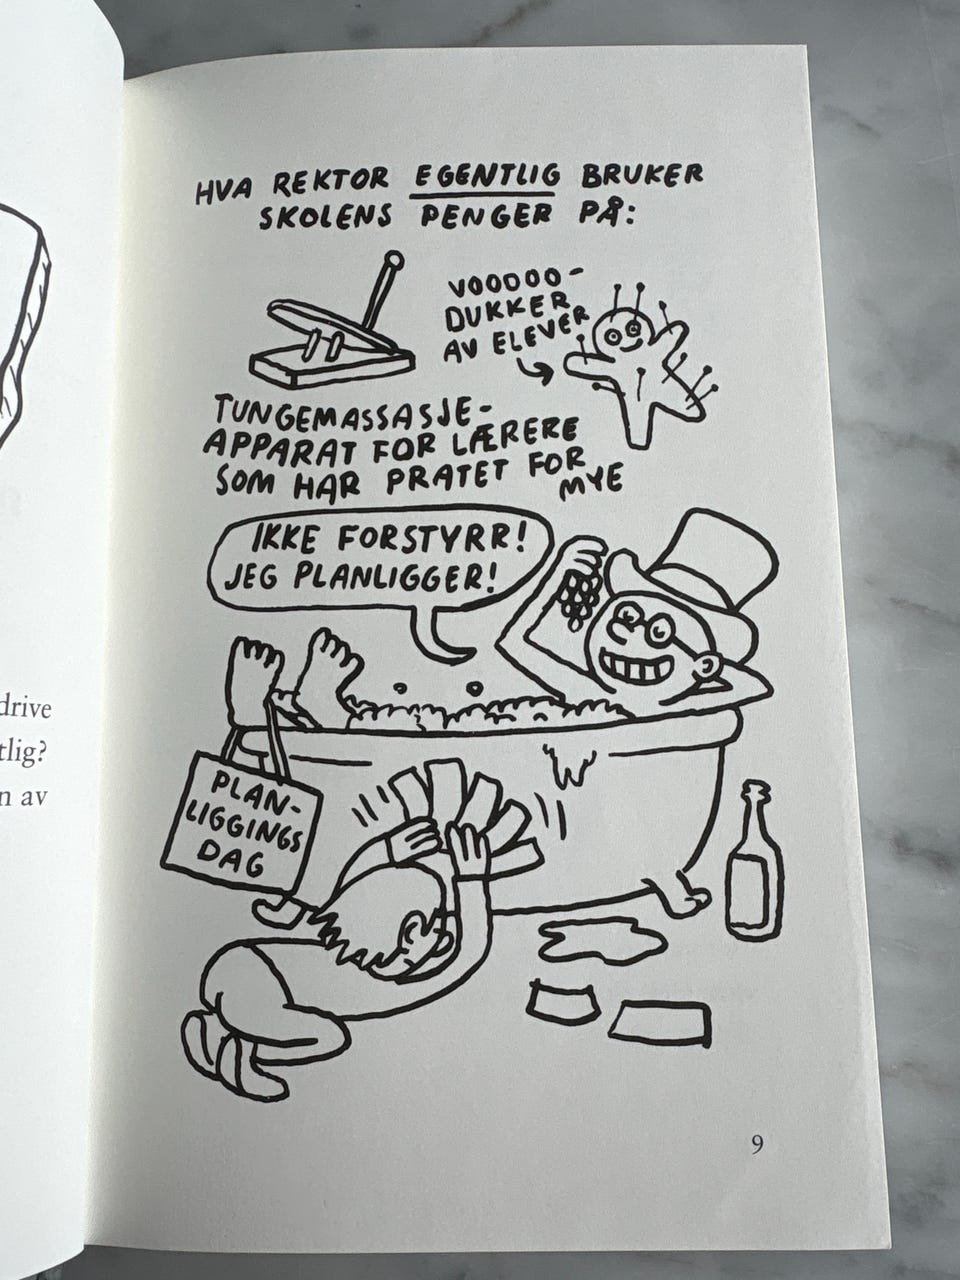 drive
tlig?
n av
HVA REKTOR EGENTLIG BRUKER
SKOLENS PENGER PÅ:
VOODOO-
DUKKER
AV ELEVER
TUNGEMASSASJE-
APPARAT FOR LÆRERE
SOM HAR PRATET FOR
MYE
IKKE FORSTYRR!
JEG PLANLIGGER!
PLAN-
LIGGINGS
DAG
9